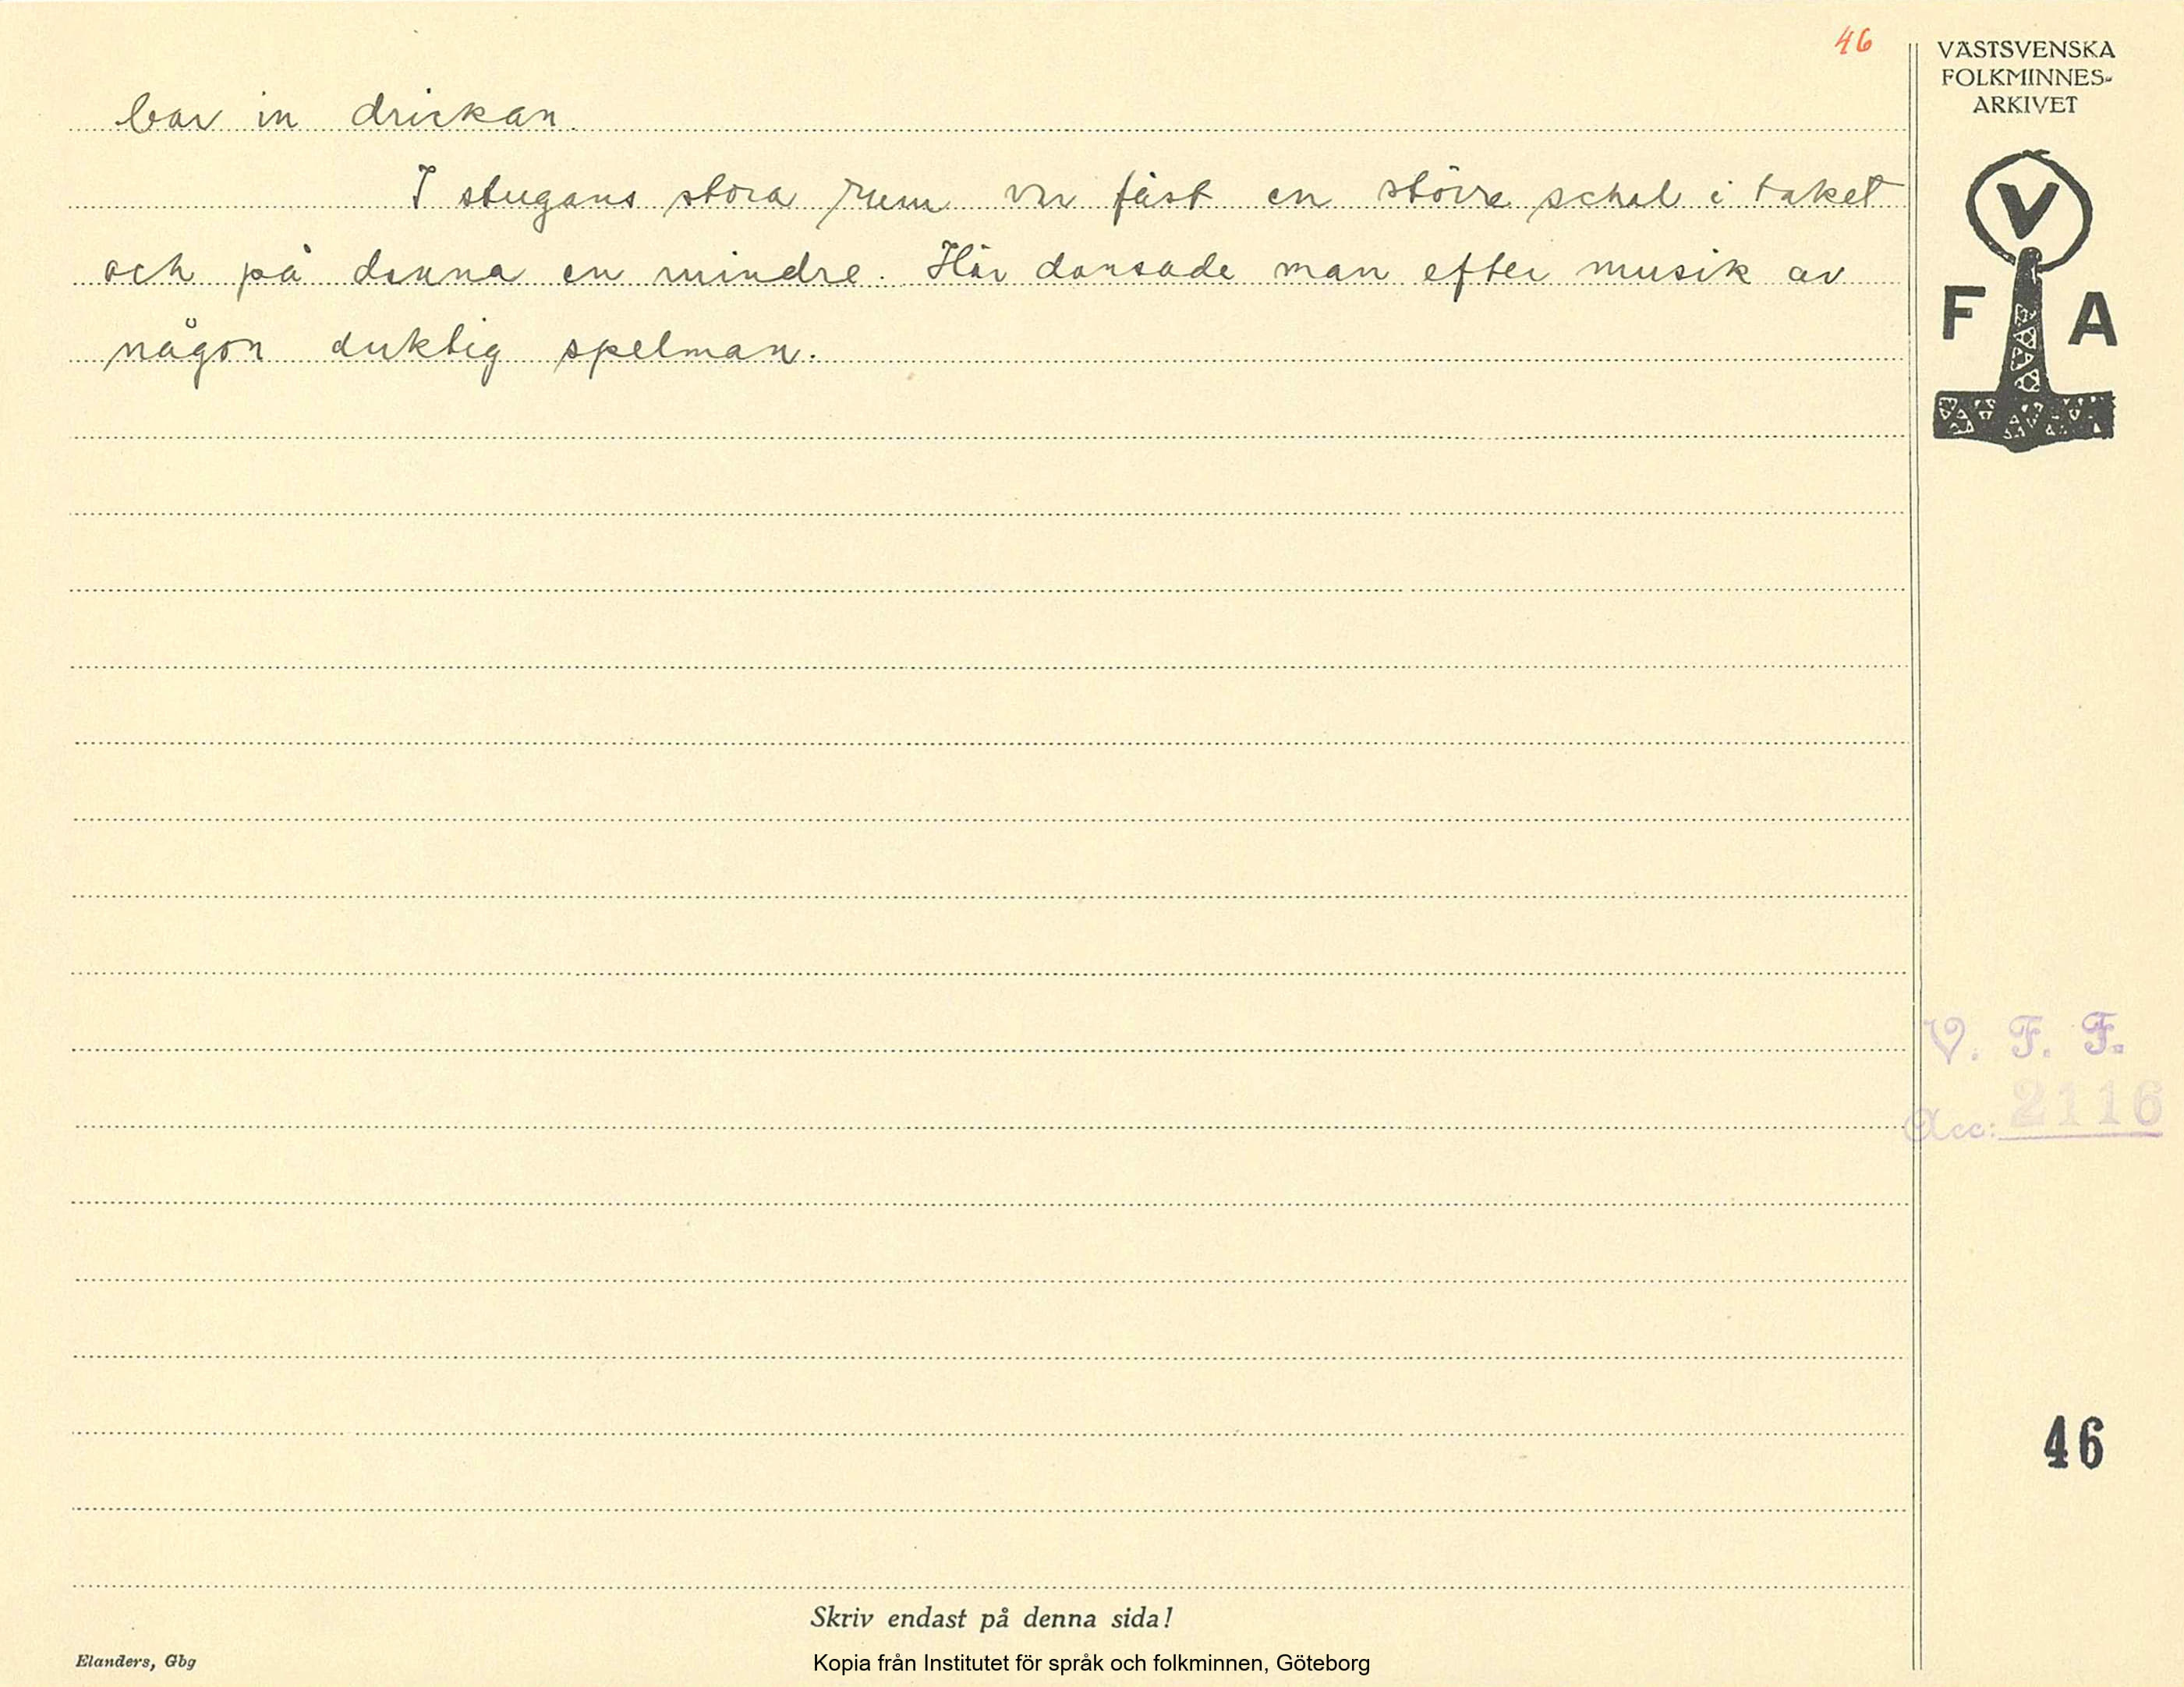 46
bar in drickan.
I stugans stora rum var fäst en större schal i taket
och på denna en mindre. Här dansade man efter musik av
någon duktig spelman.
VÄSTSVENSKA
FOLKMINNES-
ARKIVET
V
F A
V. F. F.
Acc: 2116
46
Skriv endast på denna sida!
Elanders, Gbg
Kopia från Institutet för språk och folkminnen, Göteborg